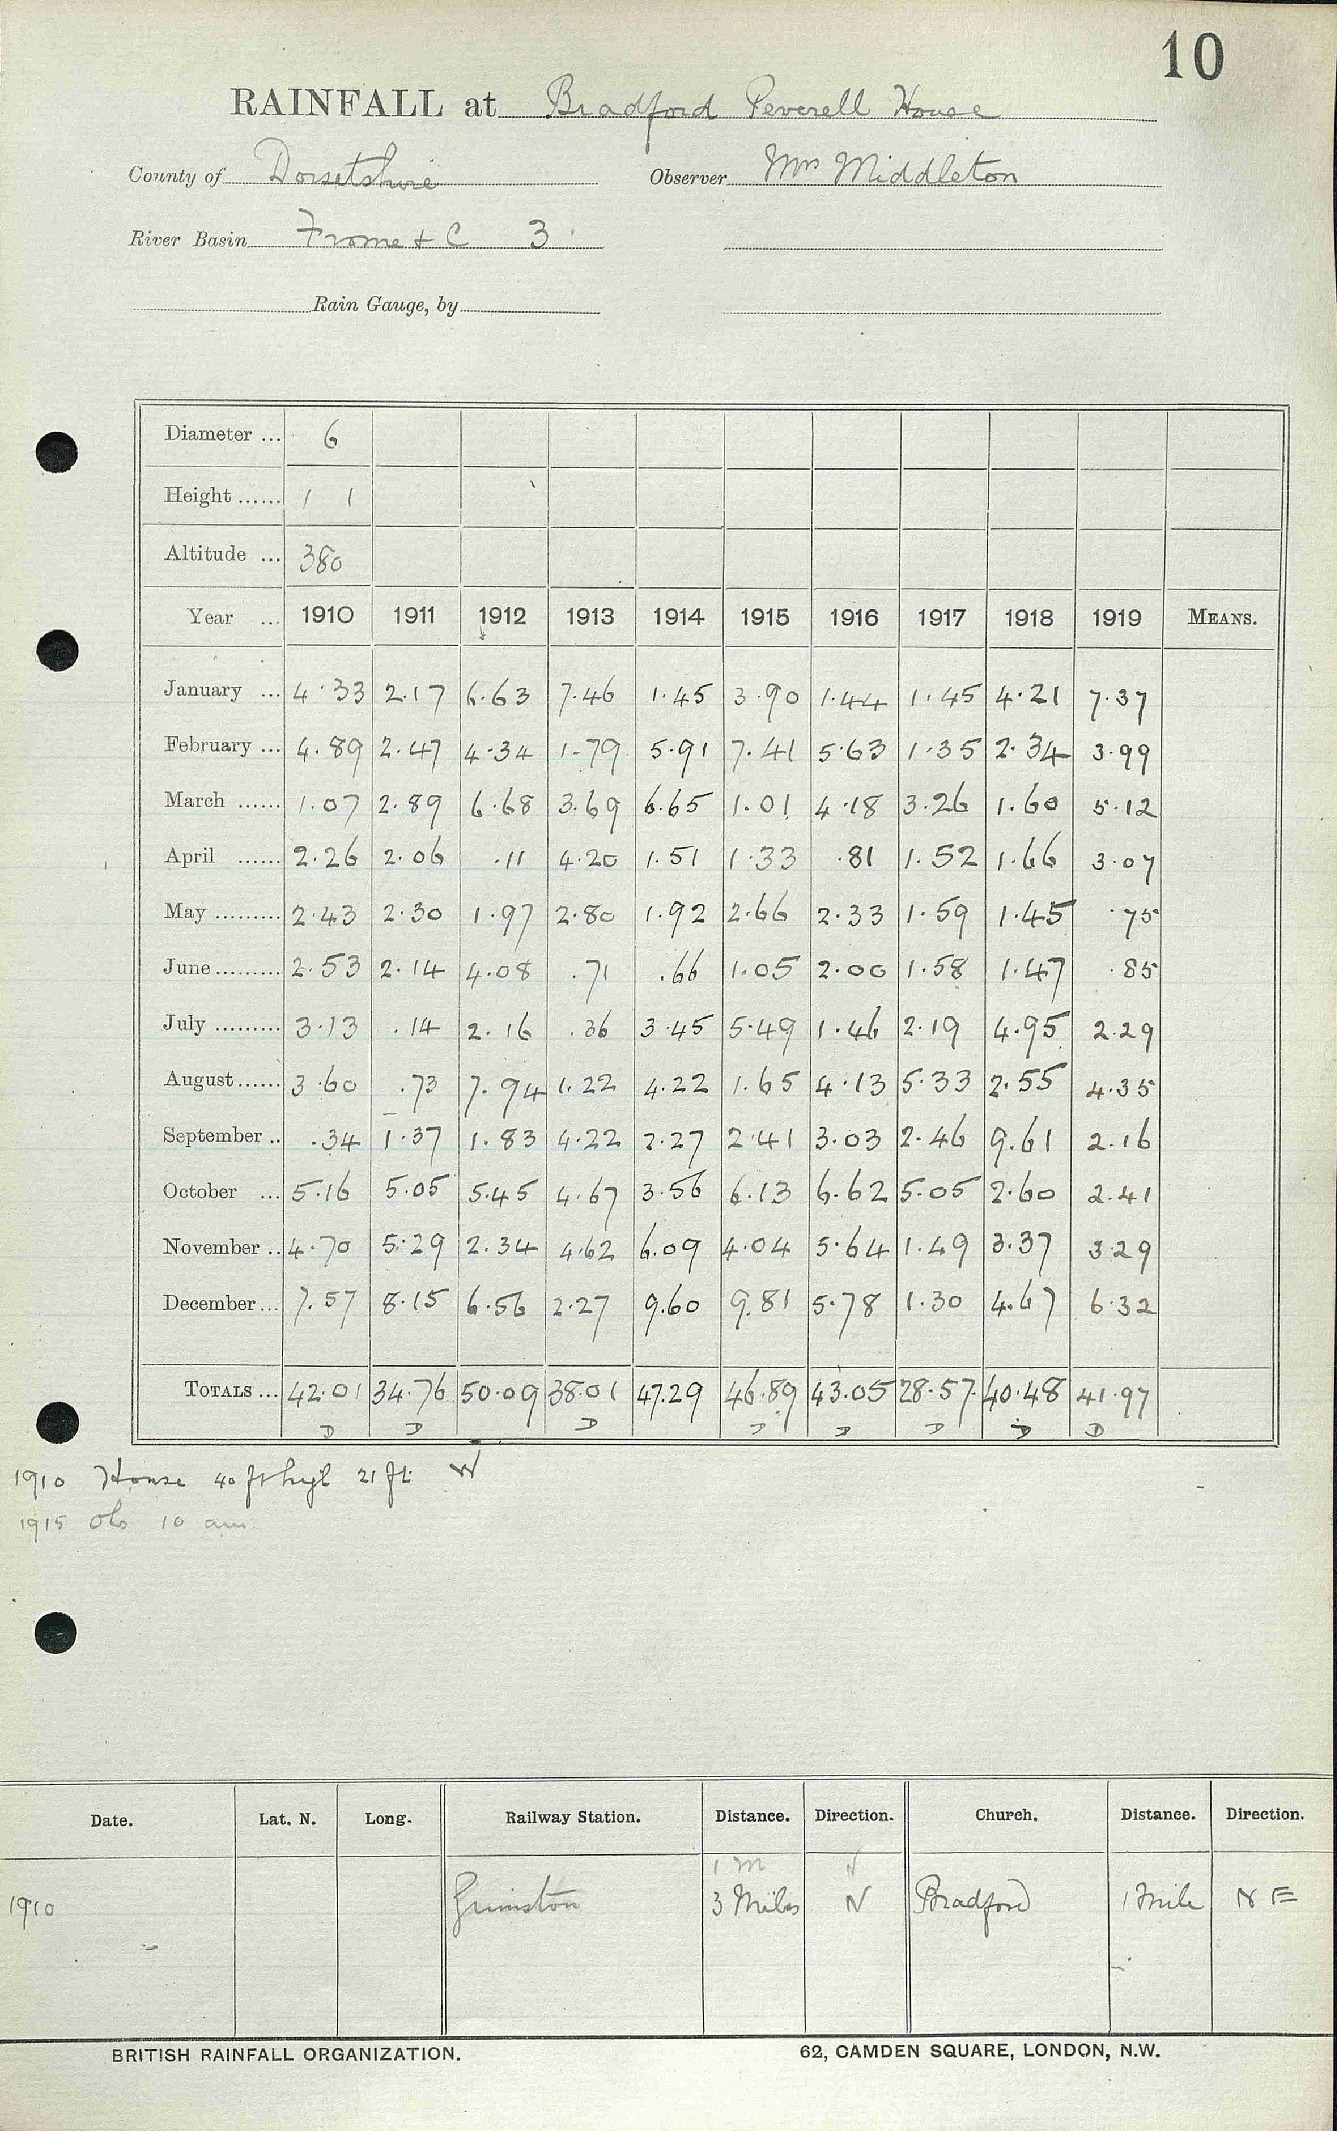 10
RAINFALL at Bradford Peverell House
County of Dorsetshire Observer Mrs Middleton
River Basin Frome & C 3
Rain Gauge, by
Diameter ... 6
Height ...... 1 1
Altitude ... 380
Year ... 1910 1911 1912 1913 1914 1915 1916 1917 1918 1919 MEANS.
January ... 4.33 2.17 6.63 7.46 1.45 3.90 1.44 1.45 4.21 7.37
February ... 4.89 2.47 4.34 1.79 5.91 7.41 5.63 1.35 2.34 3.99
March ...... 1.07 2.89 6.68 3.69 6.65 1.01 4.18 3.26 1.60 5.12
April ...... 2.26 2.06 .11 4.20 1.51 1.33 .81 1.52 1.66 3.07
May ......... 2.43 2.30 1.97 2.80 1.92 2.66 2.33 1.59 1.45 .75
June ......... 2.53 2.14 4.08 .71 .66 1.05 2.00 1.58 1.47 .85
July ......... 3.13 .14 2.16 .36 3.45 5.49 1.46 2.19 4.95 2.29
August ...... 3.60 .73 7.94 1.22 4.22 1.65 4.13 5.33 2.55 4.35
September .. .34 1.37 1.83 4.22 2.27 2.41 3.03 2.46 9.61 2.16
October ... 5.16 5.05 5.45 4.67 3.56 6.13 6.62 5.05 2.60 2.41
November .. 4.70 5.29 2.34 4.62 6.09 4.04 5.64 1.49 3.37 3.29
December ... 7.57 8.15 6.56 2.27 9.60 9.81 5.78 1.30 4.67 6.32
TOTALS ... 42.01 34.76 50.09 38.01 47.29 46.89 43.05 28.57 40.48 41.97
D D D D D D D D
1910 House 40 ft high 21 ft W
1915 Obs 10 am
Date. Lat. N. Long. Railway Station. Distance. Direction. Church. Distance. Direction.
1 m N
1910 Grimston 3 Miles N Bradford 1 Mile N E
BRITISH RAINFALL ORGANIZATION. 62, CAMDEN SQUARE, LONDON, N.W.